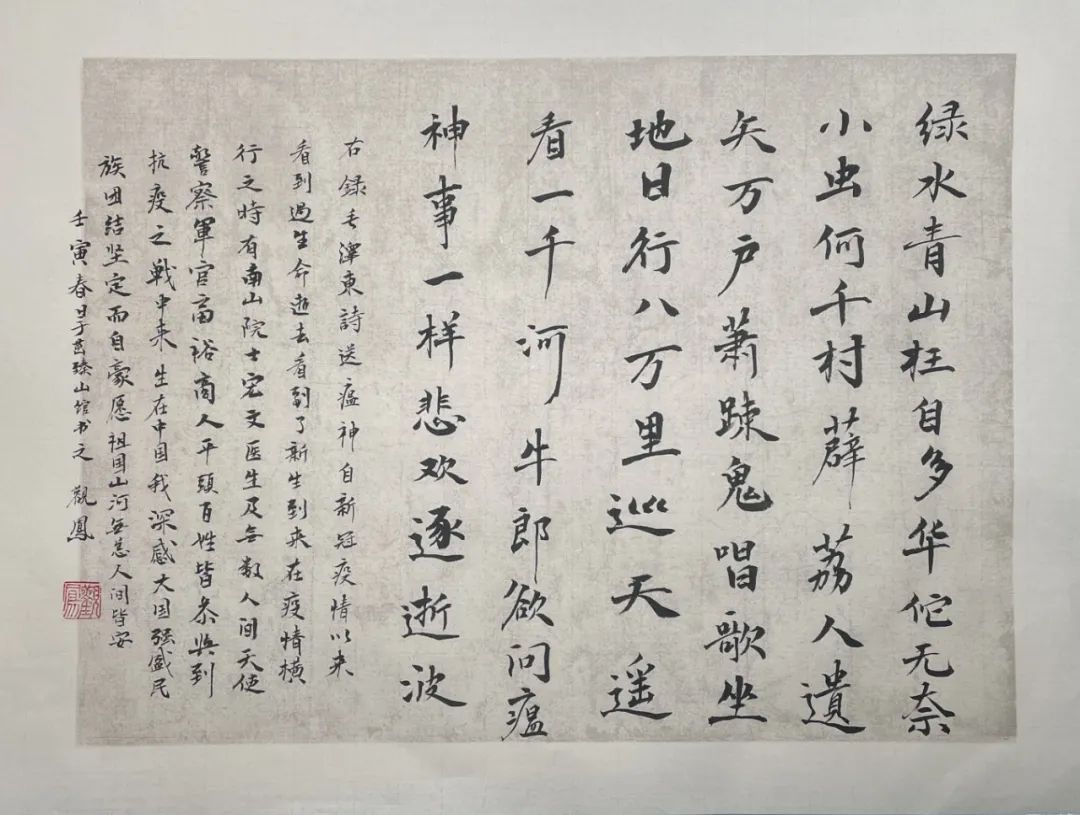 绿水青山枉自多华佗无奈
小虫何千村薜荔人遗
矢万户萧疎鬼唱歌坐
地日行八万里巡天遥
看一千河牛郎欲问瘟
神事一样悲欢逐逝波
右録毛澤東詩送瘟神自新冠疫情以来
看到過生命逝去看到了新生到来在疫情横
行之時有南山院士宏文医生及无数人间天使
警察軍官富裕商人平頭百姓皆参與到
抗疫之戦中来生在中国我深感大国强盛民
族团结坚定而自豪愿祖国山河無恙人间皆安
壬寅春日于 山馆书之 觀鳳